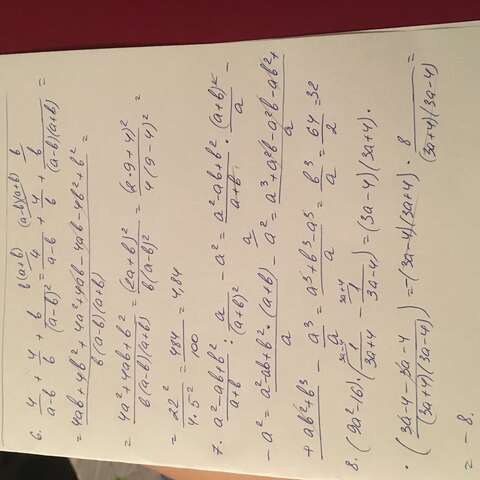 6. 4/(a-b) + 4/b + b/((a-b)²) = 4/(a-b) + 4/b + b/((a-b)(a+b)) =
= (4ab+4b²+4a²+4ab-4ab-4b²+b²)/(b(a-b)(a+b)) =
= (4a²+4ab+b²)/(b(a-b)(a+b)) = (2a+b)²/(b(a-b)²) = (2·9+4)²/(4(9-4)²) =
= 22²/(4·5²) = 484/100 = 4,84
7. (a²-ab+b²)/(a+b) : a/((a+b)²) - a² = (a²-ab+b²)/(a+b) · (a+b)²/a -
- a² = (a²-ab+b²·(a+b))/a - a² = (a³+a²b-a²b-ab²+
+ab²+b³)/a - a³/a = (a³+b³-a³)/a = b³/a = 64/2 = 32
8. (9a²-16)·(1/(3a+4) - 1/(3a-4)) = (3a-4)(3a+4)·
·((3a-4-3a-4)/((3a+4)(3a-4))) = -(3a-4)(3a+4)·8/((3a+4)(3a-4)) =
= -8.